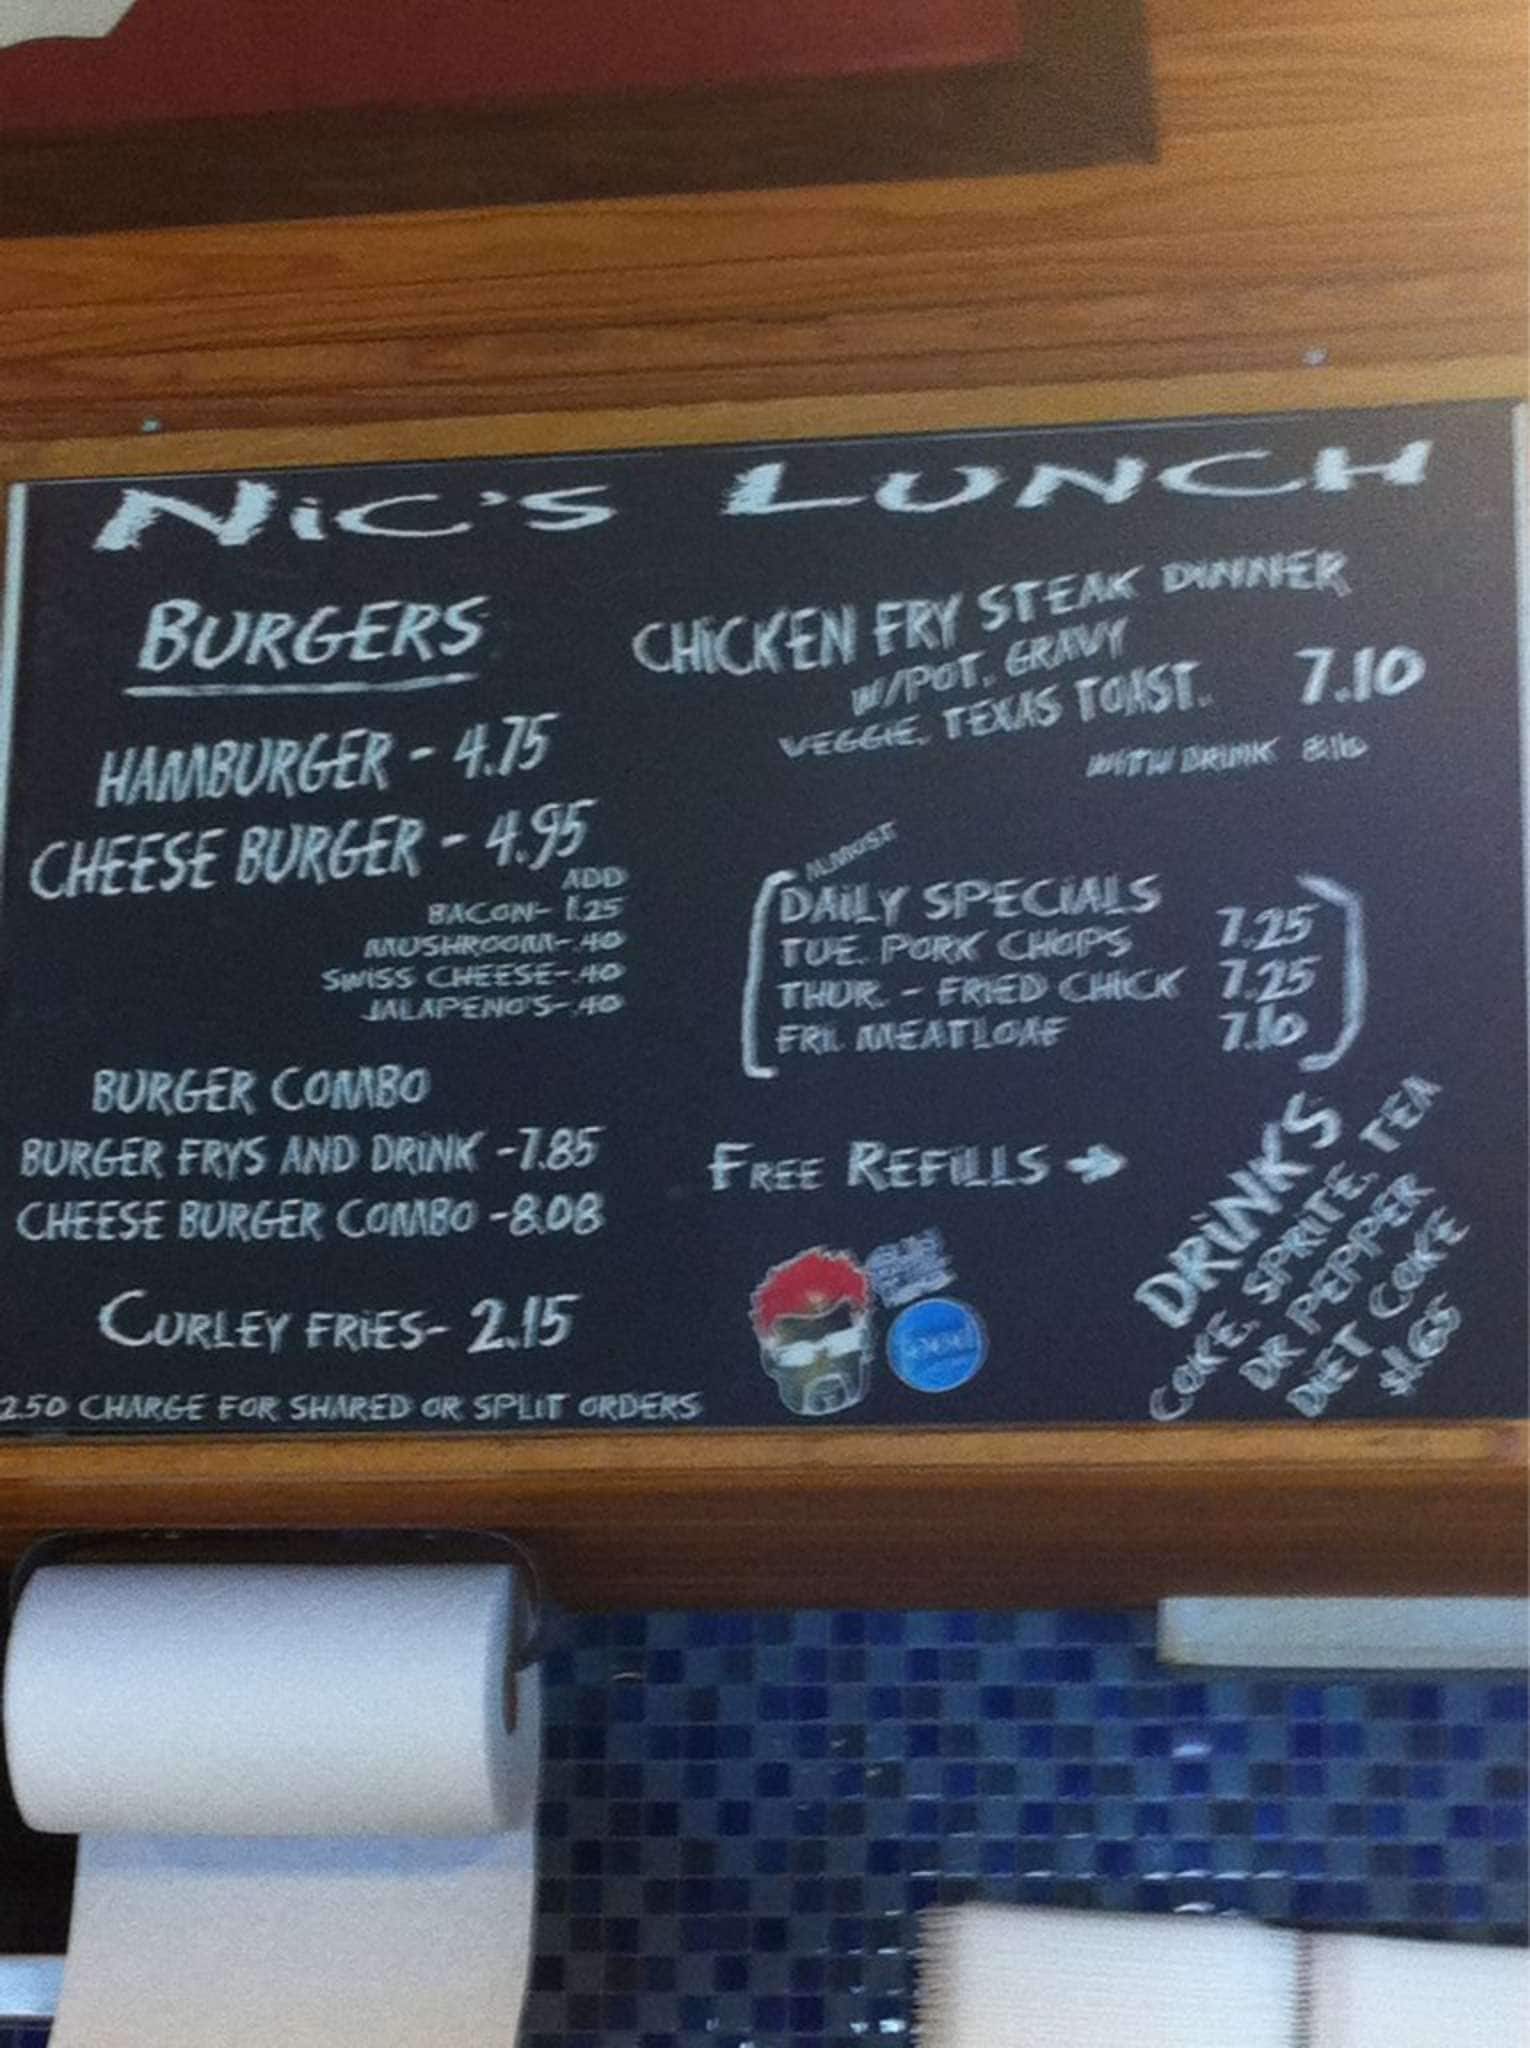 NiC'S LUNCH
BURGERS
HAMBURGER - 4.75
CHEESE BURGER - 4.95
ADD
BACON- 1.25
MUSHROOM- .40
SWISS CHEESE- .40
JALAPENO'S- .40
BURGER COMBO
BURGER FRYS AND DRiNK -7.85
CHEESE BURGER COMBO -8.08
CURLEY FRiES- 2.15
2.50 CHARGE FOR SHARED OR SPLIT ORDERS
CHiCKEN FRY STEAK DINNER
W/POT. GRAVY
VEGGIE. TEXAS TOAST. 7.10
WITH DRINK 8.10
ALMOST
DAiLY SPECiALS
TUE. PORK CHOPS 7.25
THUR. - FRIED CHICK 7.25
FRI. MEATLOAF 7.10
FREE REFiLLS →
DRiNKS
COKE, SPRITE, TEA
DR PEPPER
DIET COKE
$1.65